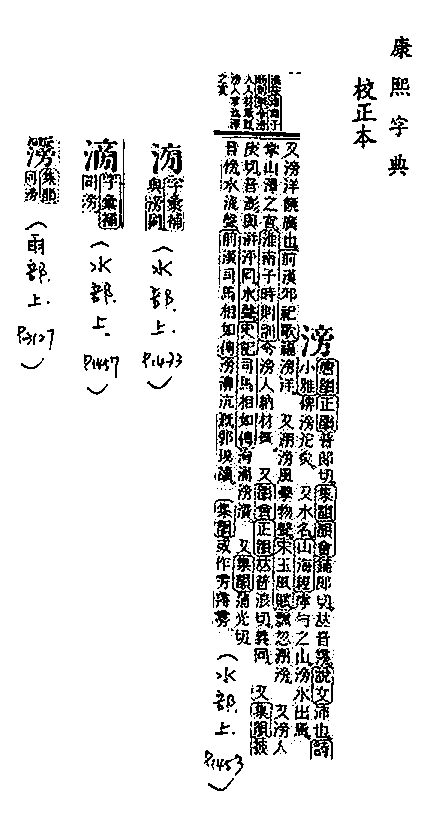 康熙字典
校正本
滂
唐韻正韻普郎切集韻韻會鋪郎切𠀤音雱說文沛也詩
小雅俾滂沱矣 又水名山海經虖勺之山滂水出焉
又滂洋饒廣也前漢郊祀歌福滂洋 又淜滂風擊物聲宋玉風賦飄忽淜滂 又滂人
掌山澤之官淮南子時則訓令滂人納材葦 又韻會正韻𠀤普浪切義同 又集韻披
庚切音澎與同水聲史記司馬相如傳洶湧滂潰 又集韻蒲光切
音傍水流聲前漢司馬相如傳滂濞沆溉郭璞讀 集韻或作雱霶
(水部.上.P.1453)
淮南子
時則訓令滂
人入材葦註
滂人掌池澤
之官
字彙補
與滂同
(水部.上.P.1433)
字彙補
同滂
(水部.上.P.1457)
集韻
同滂
(雨部上.P.3127)